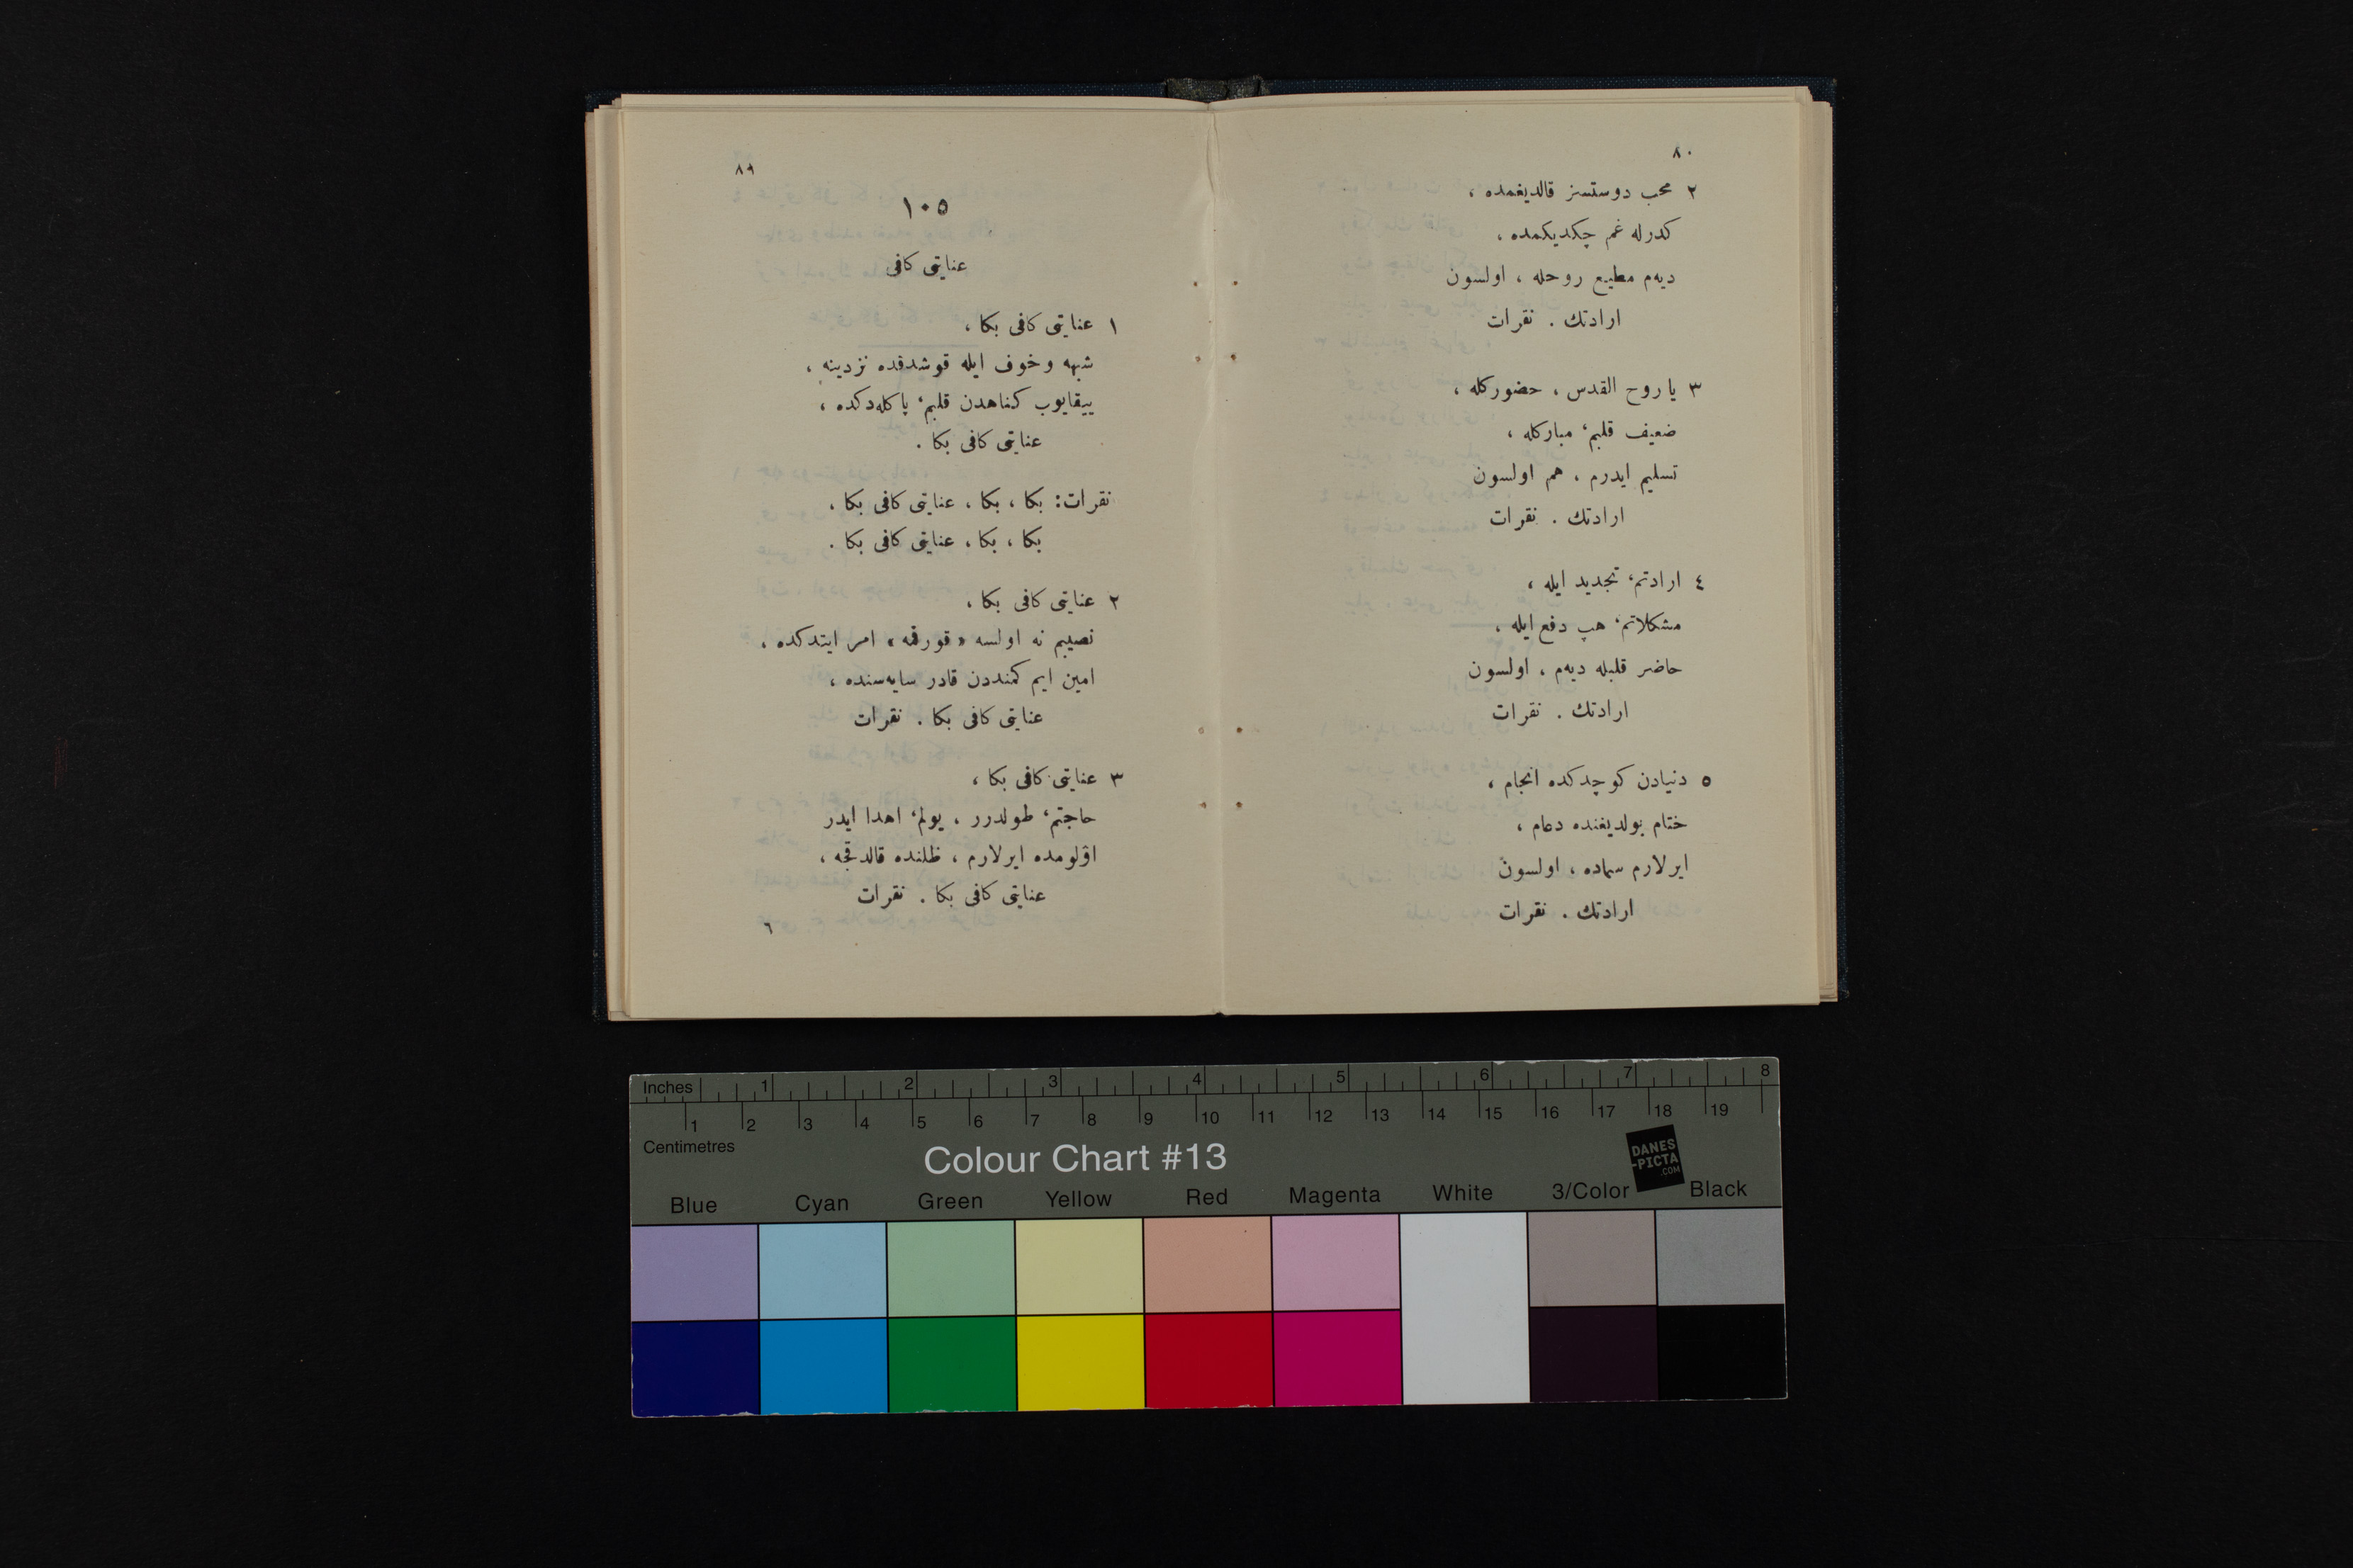 ٨٠
٢ محب دوستسز قالديغمده ،
كدرله غم چكديكمده ،
ديه‌م مطيع روحله ، اولسون
ارادتك . نقرات
٣ يا روح القدس ، حضوركله ،
ضعيف قلبم، مباركله ،
تسليم ايدرم ، هم اولسون
ارادتك . نقرات
٤ ارادتم، تجديد ايله ،
مشكلاتم، هپ دفع ايله ،
حاضر قلبله ديه‌م ، اولسون
ارادتك . نقرات
٥ دنيادن كوچدكده انجام ،
ختام بولديغنده دعام ،
ايرلارم سماده ، اولسون
ارادتك . نقرات
٨١
١٠٥
عنايتى كافى
١ عنايتى كافى بكا ،
شبهه و خوف ايله قوشدقده نزدينه ،
ييقايوب كناهدن قلبم، پاكله‌دكده ،
عنايتى كافى بكا .
نقرات: بكا ، بكا ، عنايتى كافى بكا ،
بكا ، بكا ، عنايتى كافى بكا .
٢ عنايتى كافى بكا ،
نصيبم نه اولسه «قورقمه» امر ايتدكده ،
امين ايم كمنددن قادر سايه‌سنده ،
عنايتى كافى بكا . نقرات
٣ عنايتى كافى بكا ،
حاجتم، طولدرر ، يولم، اهدا ايدر
اۆلومده ايرلارم ، ظلنده قالدقجه ،
عنايتى كافى بكا . نقرات
٦
Inches 1 2 3 4 5 6 7 8
1 2 3 4 5 6 7 8 9 10 11 12 13 14 15 16 17 18 19
Centimetres
Colour Chart #13
DANES
-PICTA
.COM
Blue Cyan Green Yellow Red Magenta White 3/Color Black